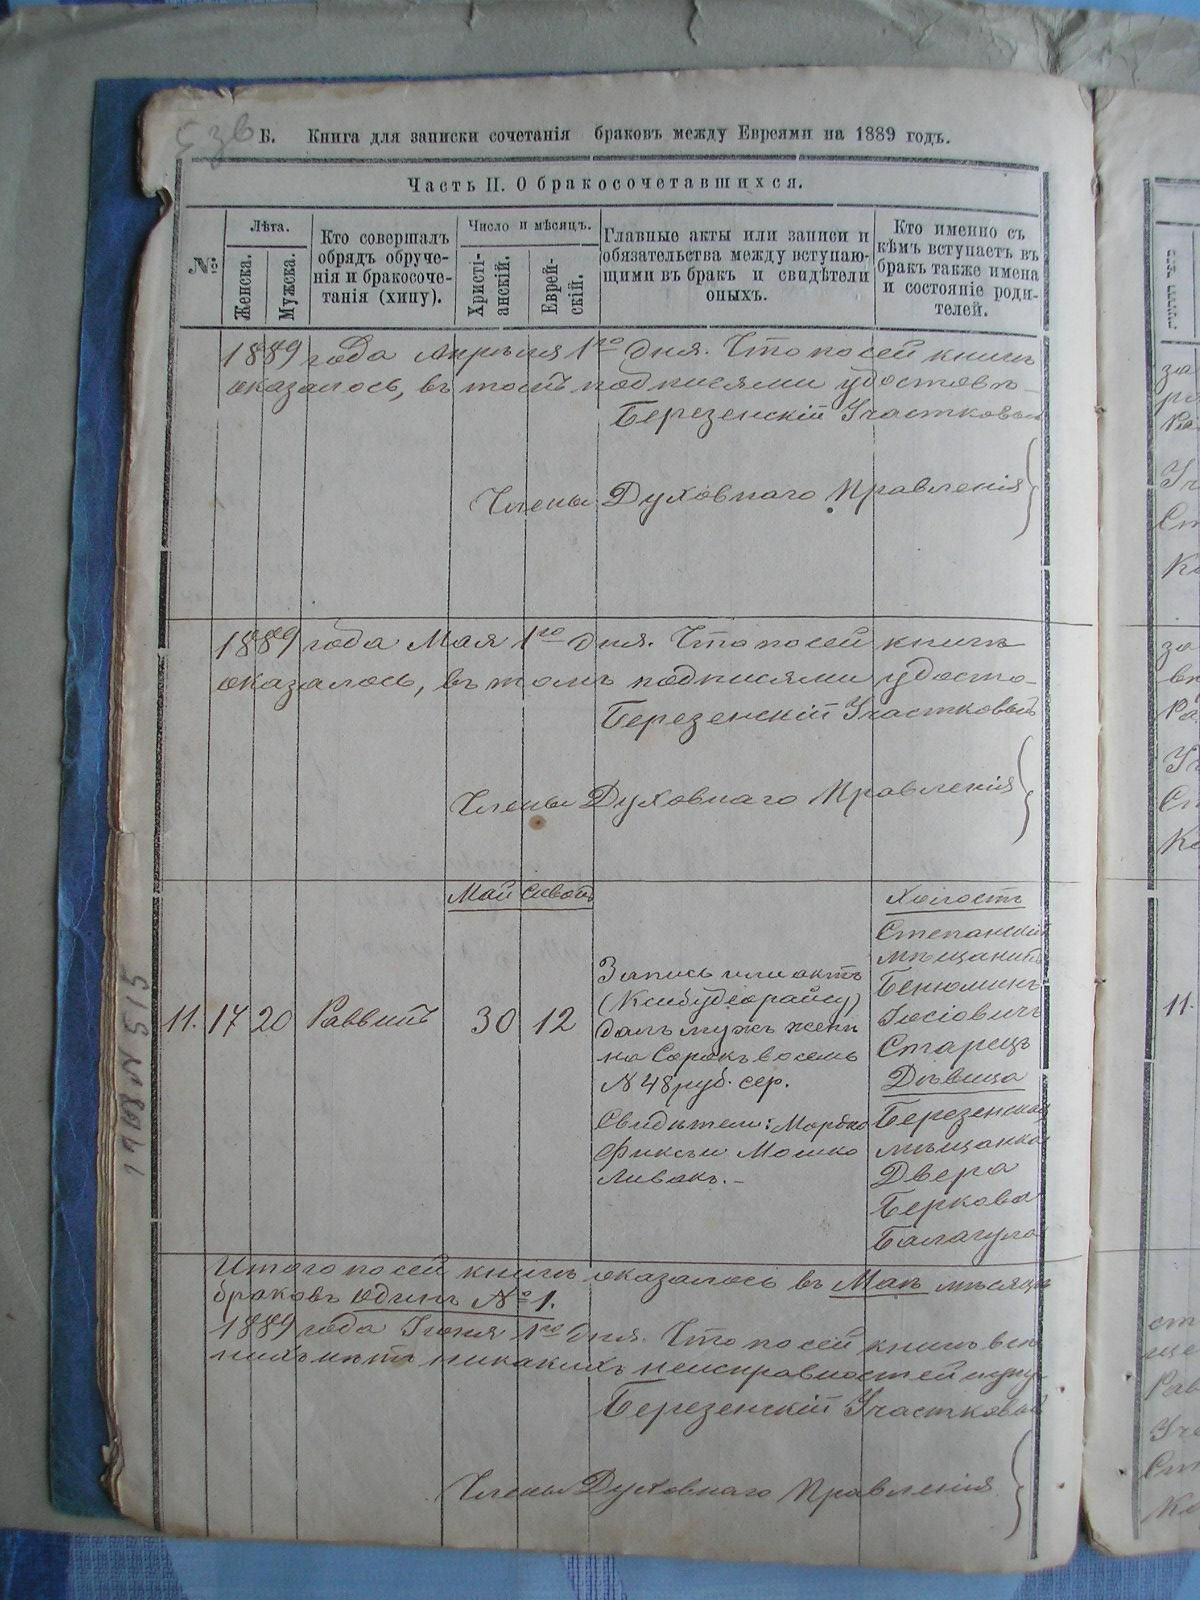 Б. Книга для записки сочетанія браковъ между Евреями на 1889 годъ.
Часть II. О бракосочетавшихся.
№
Лѣта.
Женска.
Мужска.
Кто совершалъ
обрядъ обруче-
нія и бракосоче-
танія (хипу).
Число и мѣсяцъ.
Христі-
анскій.
Еврей-
скій.
Главные акты или записи и
обязательства между вступаю-
щими въ бракъ и свидѣтели
оныхъ.
Кто именно съ
кѣмъ вступаетъ въ
бракъ также имена
и состояніе роди-
телей.
1889 года Апрѣля 1го дня. Что по сей книгѣ
оказалось, въ томъ подписями удостовѣ-
Березенскій Участковый
Члены Духовнаго Правленія
1889 года Мая 1го дня. Что по сей книгѣ
оказалось, въ томъ подписями удосто-
Березенскій Участковый
Члены Духовнаго Правленія
Май Сивонъ
11. 17 20 Раввинъ 30 12
Запись или актъ
далъ мужъ женѣ
на Сорокъ восемь
№ 48 руб. сер.
Свидѣтели: Мордко
Фиксъ и Мошко
Ливакъ.–
Холостъ
Степанскій
мѣщанинъ
Бенюминъ
Іосіовичъ
Старецъ
Дѣвица
Березенская
мѣщанка
Двера
Беркова
Балагула
Итого по сей книгѣ оказалось въ Маѣ мѣсяцѣ
браковъ одинъ № 1.
1889 года Іюня 1го дня. Что по сей книгѣ
никакихъ неисправностей
Березенскій Участковый
Члены Духовнаго Правленія
11.